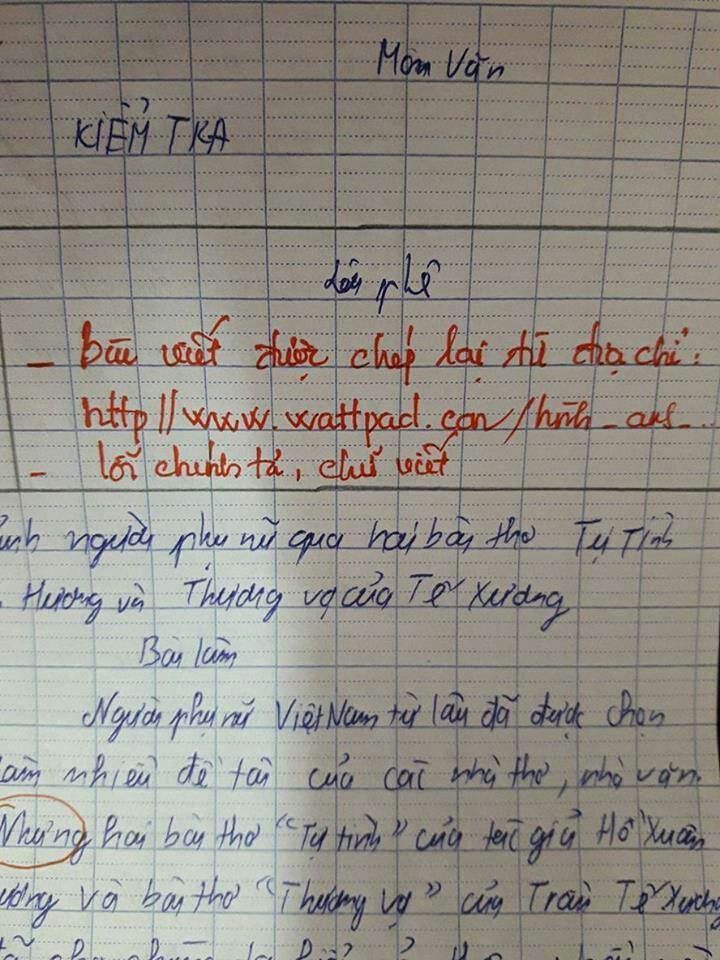 Môn Văn
KIỂM TRA
Lời phê
- Bài viết được chép lại từ địa chỉ:
http//www.wattpad.con/hình_anh_...
- lỗi chính tả, chữ viết
ảnh người phụ nữ qua hai bài thơ Tự Tình
Hương và Thương vợ của Tế Xương
Bài làm
Người phụ nữ Việt Nam từ lâu đã được chọn
làm nhiều đề tài của các nhà thơ, nhà văn.
Nhưng hai bài thơ "Tự tình" của tác giả Hồ Xuân
ương và bài thơ "Thương vợ" của Trần Tế Xương